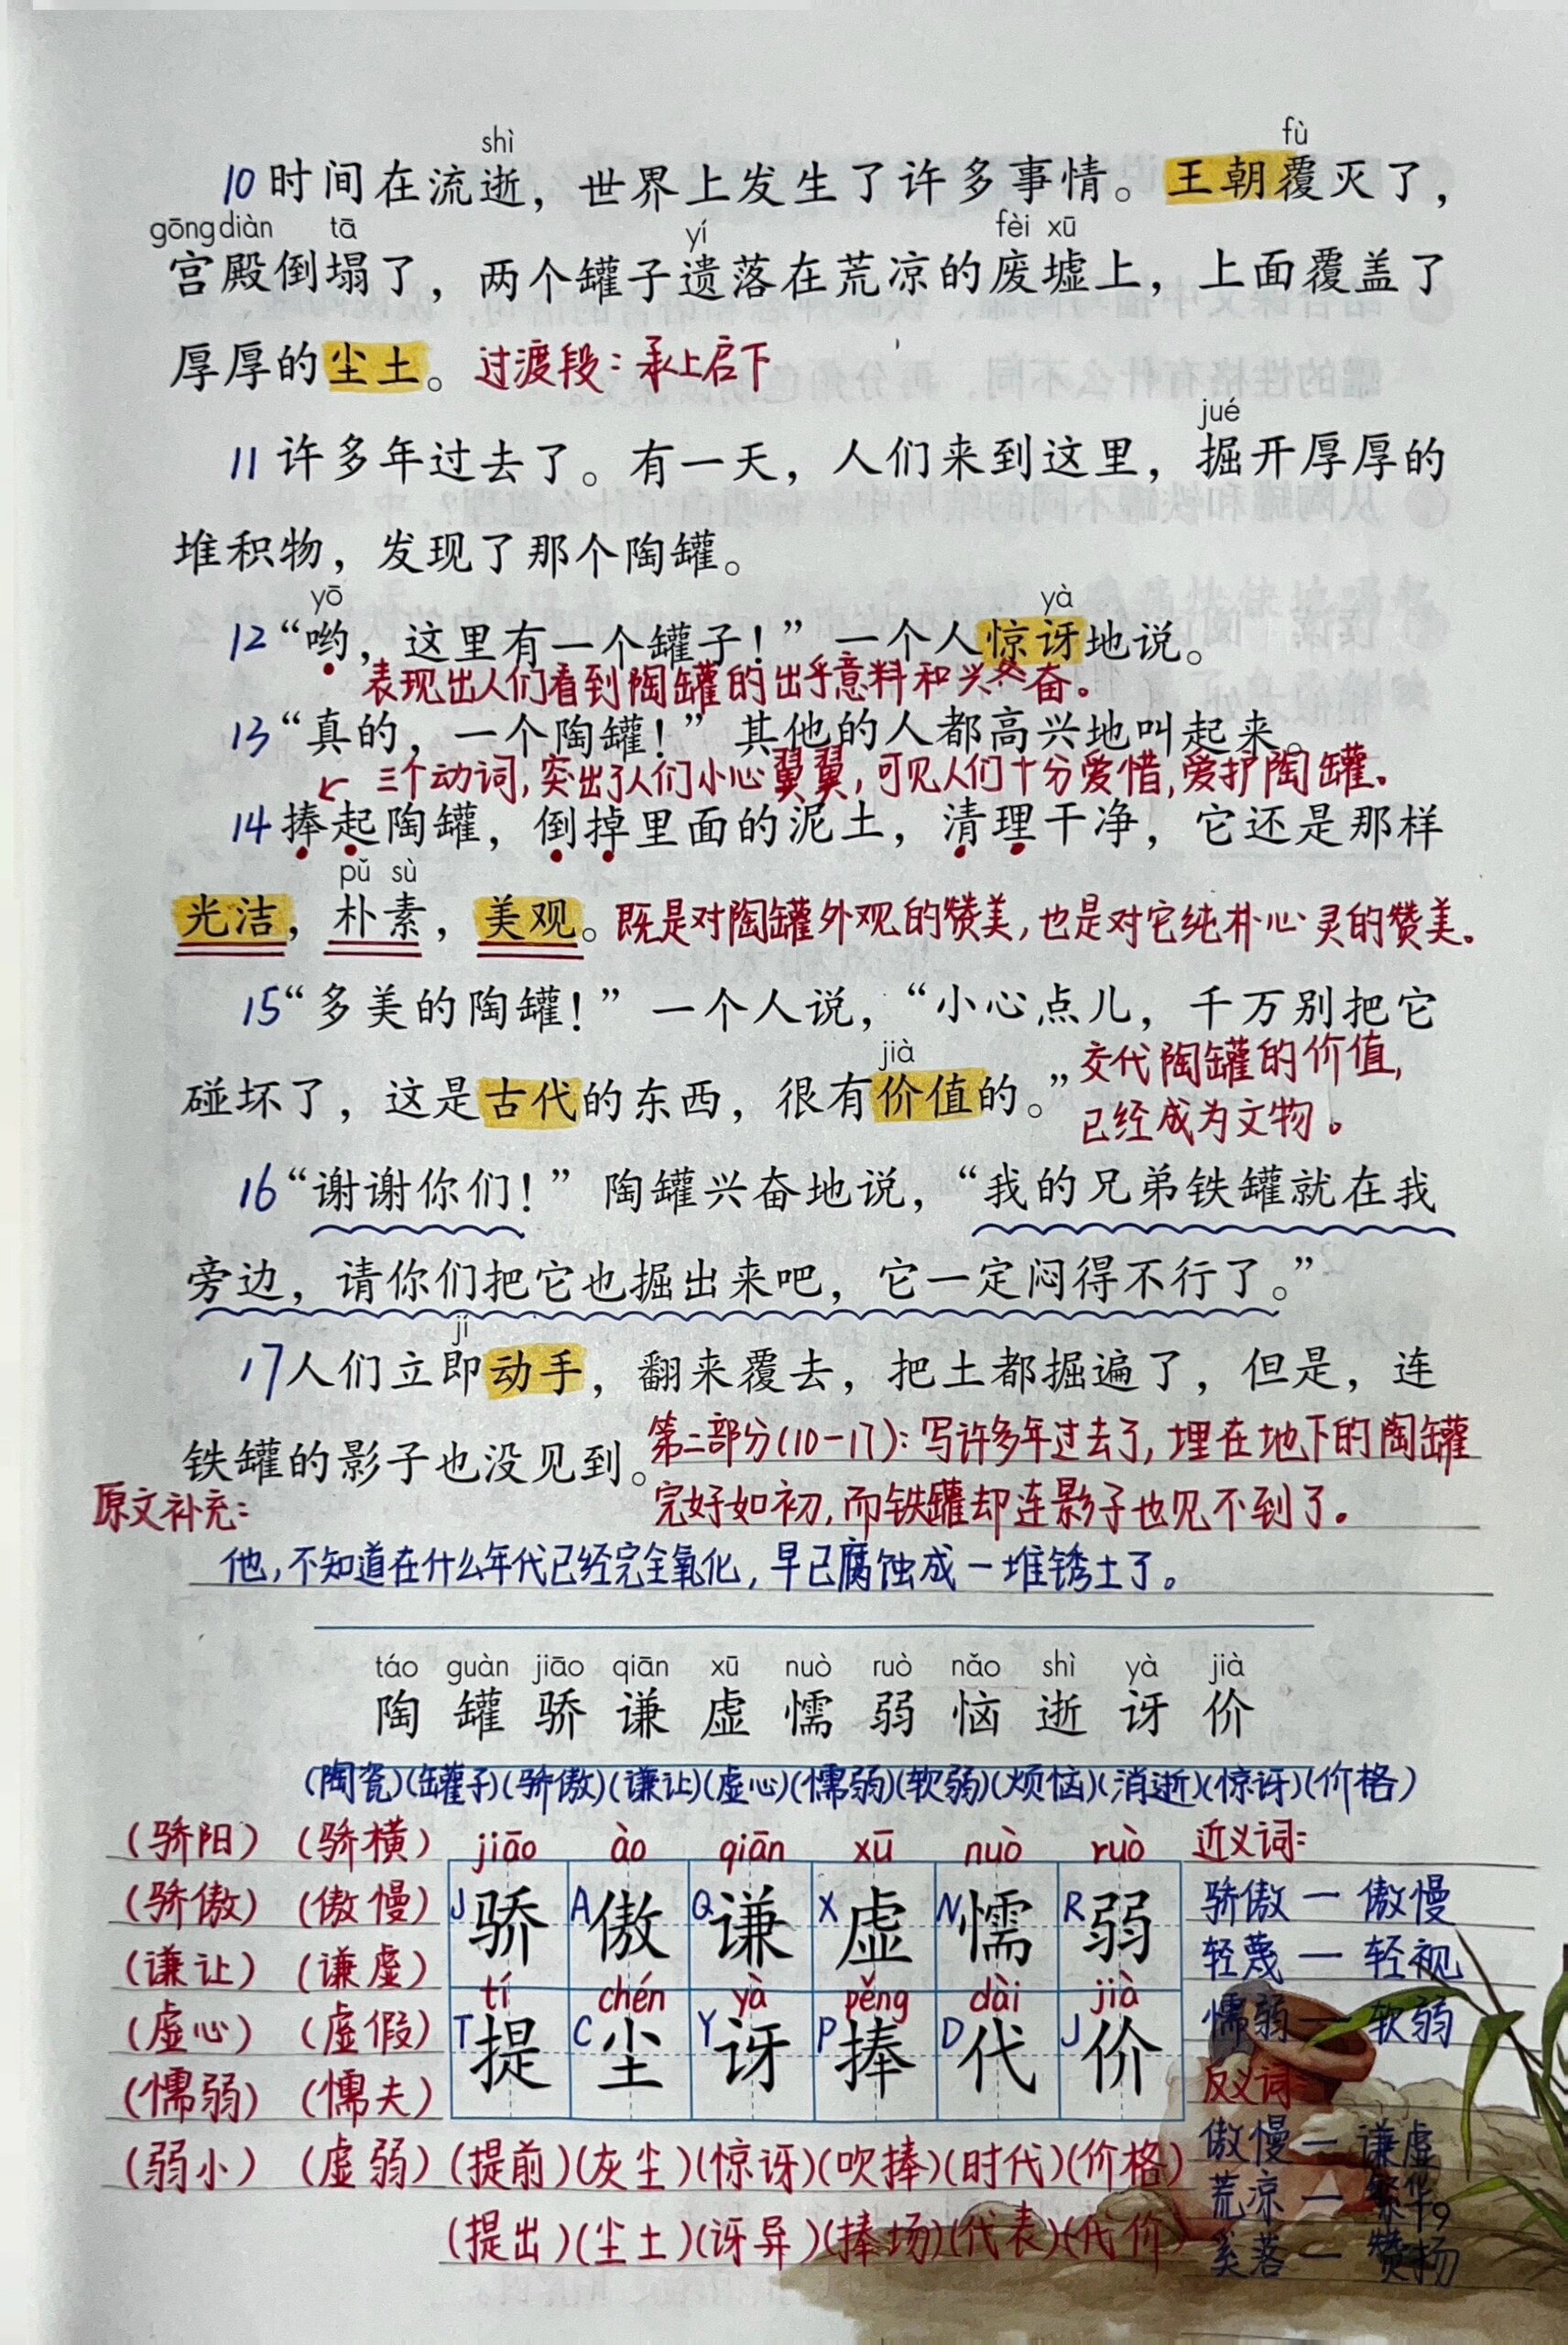 shì fù
10 时间在流逝，世界上发生了许多事情。王朝覆灭了，
gōng diàn tā yí fèi xū
宫殿倒塌了，两个罐子遗落在荒凉的废墟上，上面覆盖了
厚厚的尘土。过渡段：承上启下
jué
11 许多年过去了。有一天，人们来到这里，掘开厚厚的
堆积物，发现了那个陶罐。
yō yà
12 “哟，这里有一个罐子！”一个人惊讶地说。
表现出人们看到陶罐的出乎意料和兴奋。
13 “真的，一个陶罐！”其他的人都高兴地叫起来。
三个动词，突出了人们小心翼翼，可见人们十分爱惜，爱护陶罐。
14 捧起陶罐，倒掉里面的泥土，清理干净，它还是那样
pǔ sù
光洁，朴素，美观。既是对陶罐外观的赞美，也是对它纯朴心灵的赞美。
15 “多美的陶罐！”一个人说，“小心点儿，千万别把它
jià
碰坏了，这是古代的东西，很有价值的。”
交代陶罐的价值，
已经成为文物。
16 “谢谢你们！”陶罐兴奋地说，“我的兄弟铁罐就在我
旁边，请你们把它也掘出来吧，它一定闷得不行了。”
jí
17 人们立即动手，翻来覆去，把土都掘遍了，但是，连
铁罐的影子也没见到。
第二部分(10-17)：写许多年过去了，埋在地下的陶罐
完好如初，而铁罐却连影子也见不到了。
原文补充：
他，不知道在什么年代已经完全氧化，早已腐蚀成一堆锈土了。
táo guàn jiāo qiān xū nuò ruò nǎo shì yà jià
陶 罐 骄 谦 虚 懦 弱 恼 逝 讶 价
(陶瓷)(罐子)(骄傲)(谦让)(虚心)(懦弱)(软弱)(烦恼)(消逝)(惊讶)(价格)
(骄阳) (骄横) jiāo ào qiān xū nuò ruò 近义词：
(骄傲) (傲慢) J骄 A傲 Q谦 X虚 N懦 R弱 骄傲—傲慢
(谦让) (谦虚) 轻蔑—轻视
tí chén yà pěng dài jià
(虚心) (虚假) T提 C尘 Y讶 P捧 D代 J价 懦弱—软弱
(懦弱) (懦夫) 反义词：
(弱小) (虚弱) (提前)(灰尘)(惊讶)(吹捧)(时代)(价格) 傲慢—谦虚
荒凉—繁华
19
(提出)(尘土)(讶异)(捧场)(代表)(代价) 奚落—赞扬